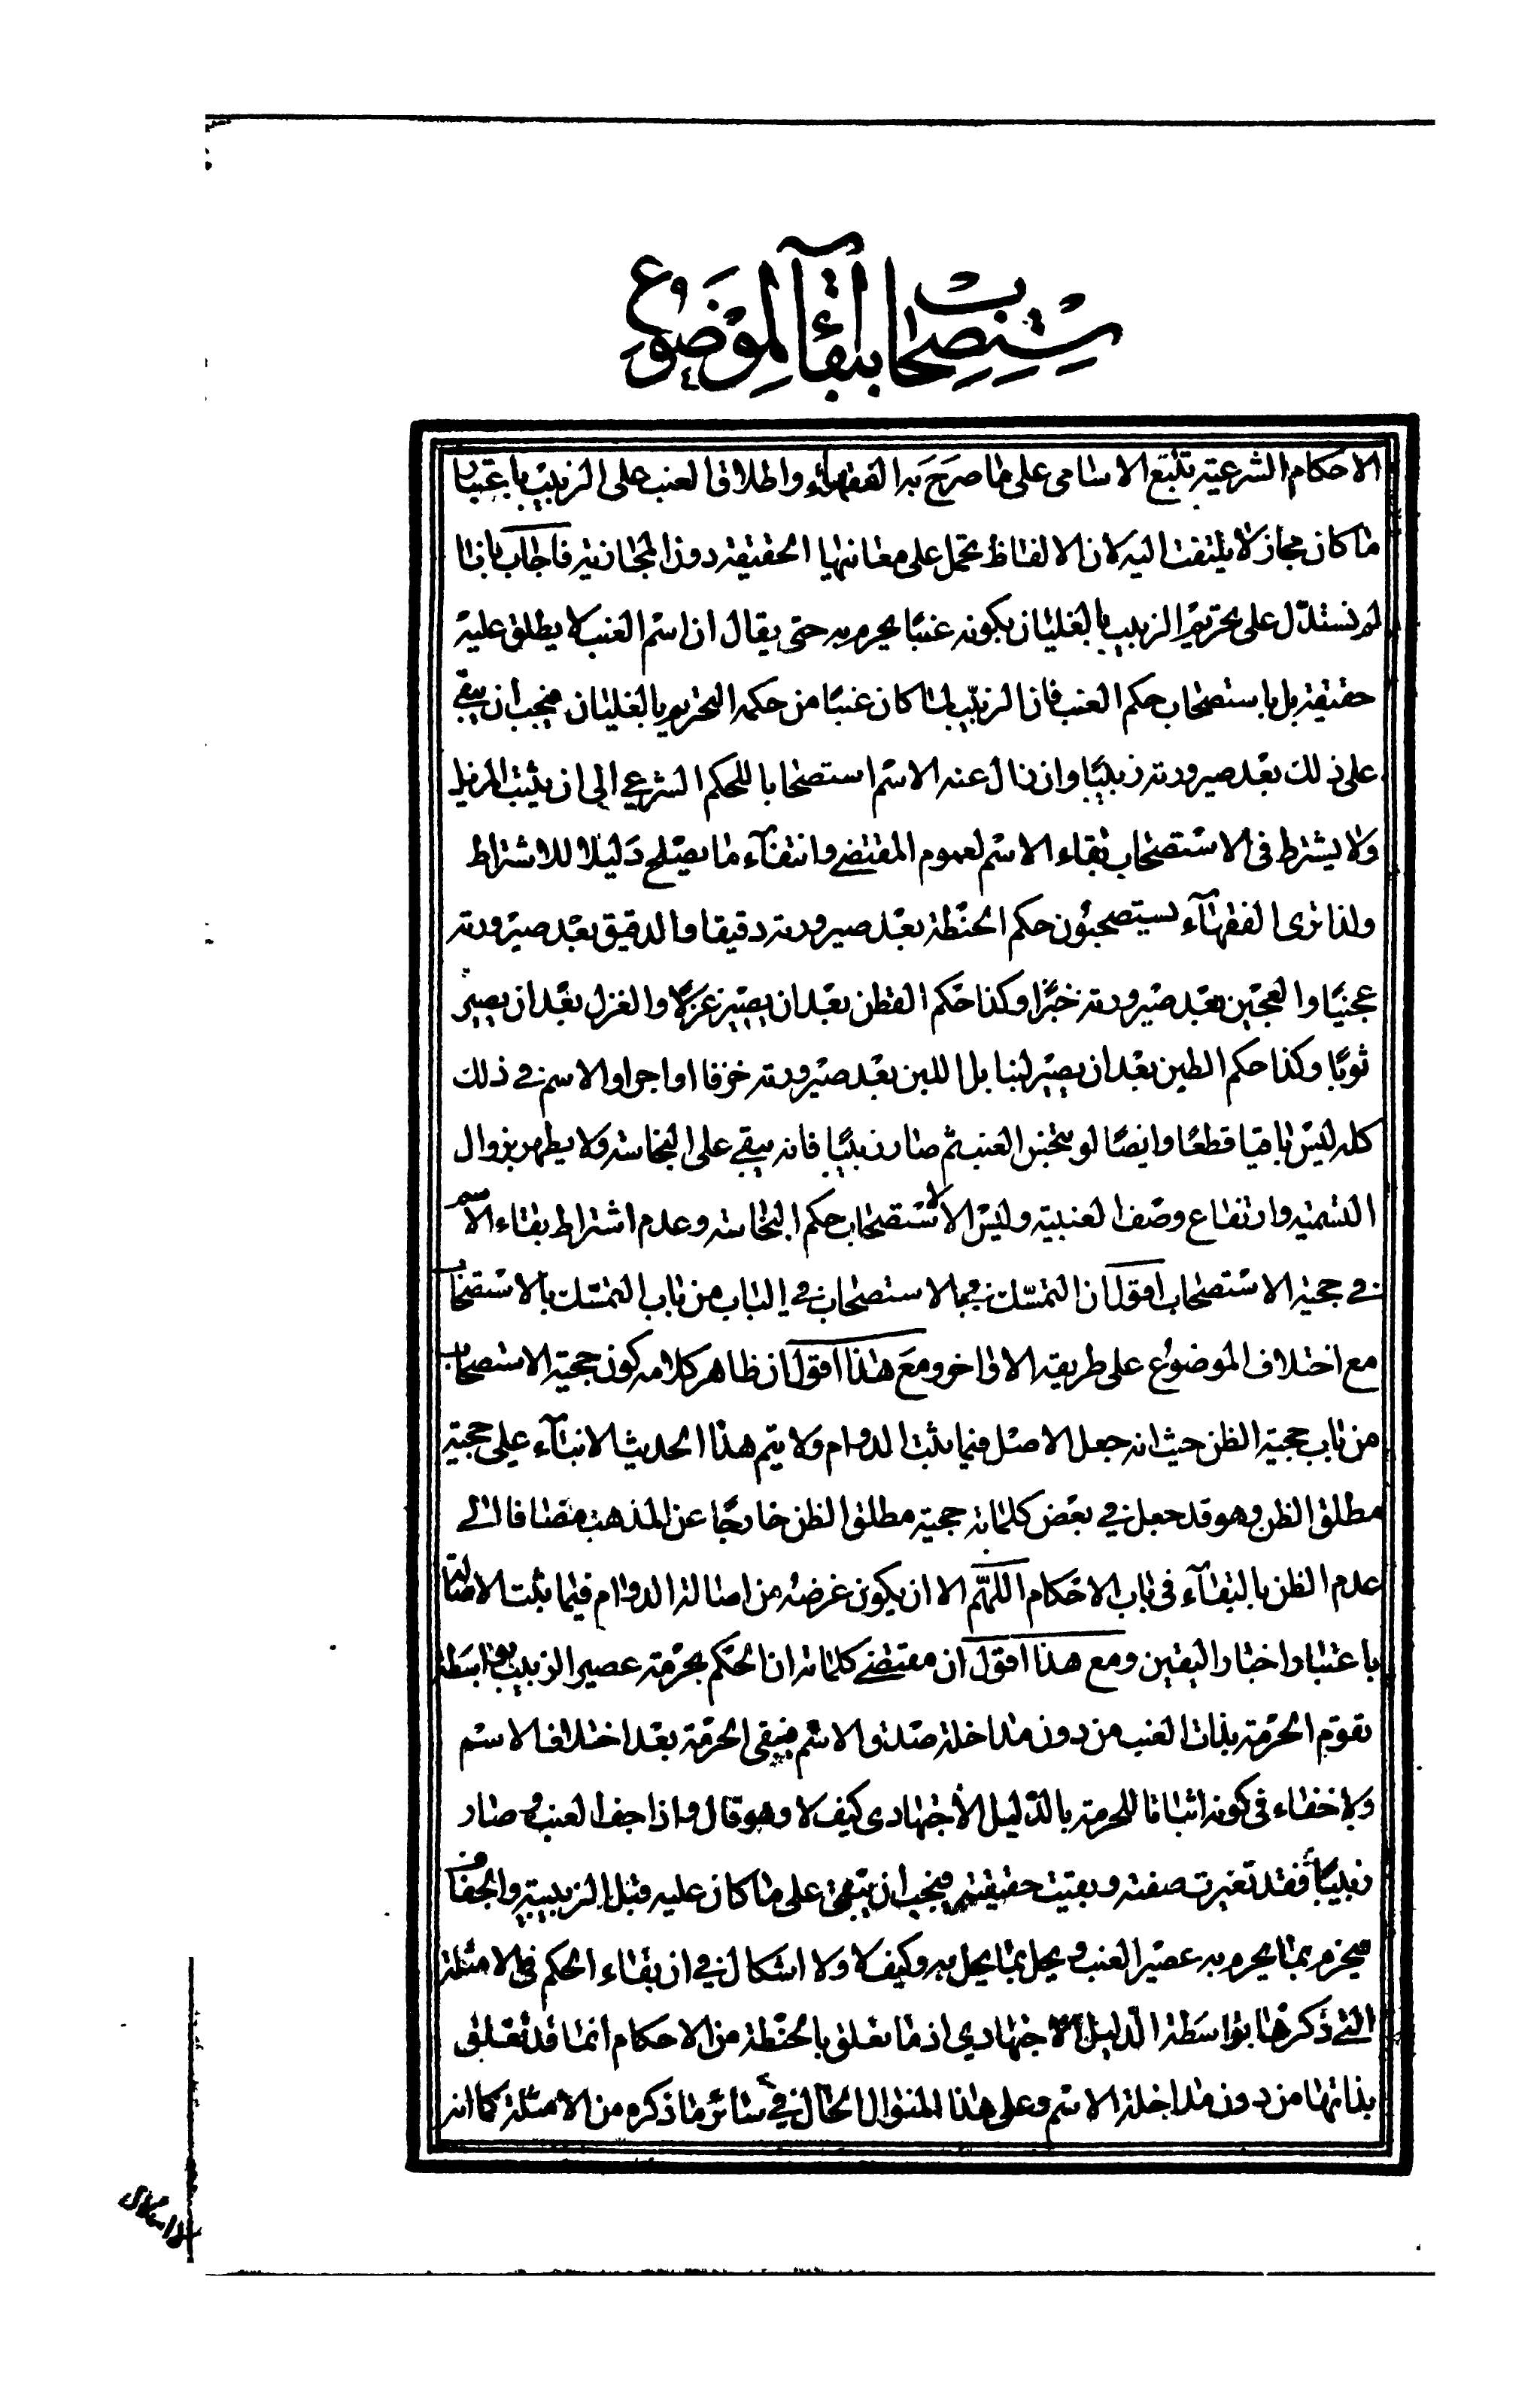 ستصحاب بقاء الموضوع
الاحكام الشرعية تتبع الاسامى على ما صرح به الفقهاء واطلاق العنب على الزبيب باعتبار
ما كان مجاز لا يلتفت اليه لان الالفاظ تحمل على معانيها الحقيقة دون المجازية فاجاب بانا
لم نستدل على تحريم الزبيب بالغليان بكونه عنبا يحرم به حتى يقال ان اسم العنب لا يطلق عليه
حقيقة بل باستصحاب حكم العنب فان الزبيب لما كان عنبا من حكمه التحريم بالغليان فيجب ان يبقى
على ذلك بعد صيرورته زبيبا وان زال عنه الاسم استصحابا للحكم الشرعي الى ان يثبت المزيل
ولا يشترط فى الاستصحاب بقاء الاسم لعموم المقتضى وانتفاء ما يصلح دليلا للاشتراط
ولذا ترى الفقهاء يستصحبون حكم الحنطة بعد صيرورته دقيقا والدقيق بعد صيرورته
عجينا والعجين بعد صيرورته خبزا وكذا حكم القطن بعد ان يصير غزلا والغزل بعد ان يصير
ثوبا وكذا حكم الطين بعد ان يصير لبنا بل اللبن بعد صيرورته خزفا او اجرا والاسم في ذلك
كله ليس باقيا قطعا وايضا لو تنجس العنب ثم صار زبيبا فانه يبقى على النجاسة ولا يطهر بزوال
التسمية وارتفاع وصف العنبية وليس الا لاستصحاب حكم النجاسة وعدم اشتراط بقاء الاسم
في حجية الاستصحاب اقول ان التمسك فيها لاستصحاب في الباب من باب التمسك بالاستصحاب
مع اختلاف الموضوع على طريقة الاواخر ومع هذا اقول ان ظاهر كلامه كون حجية الاستصحاب
من باب حجية الظن حيث انه جعل الاصل فيما يثبت الدوام ولا يتم هذا الحديث الا بناء على حجية
مطلق الظن وهو قد جعل في بعض كلماته حجية مطلق الظن خارجا عن المذهب مضافا الى
عدم الظن بالبقاء فى باب الاحكام اللهم الا ان يكون غرضه من اصالة الدوام فيما يثبت الاصالة
باعتبار اخبار اليقين ومع هذا اقول ان مقتضى كلماته ان الحكم بحرمة عصير الزبيب بواسطة
تقوم الحرمة بذات العنب من دون مداخلة صدق الاسم فيبقى الحرمة بعد اختلاف الاسم
ولا خفاء فى كونه اثباتا للحرمة بالدليل الاجتهادى كيف لا وهو قال واذا جف العنب وصار
زبيبا فقد تغيرت صفته وبقيت حقيقته فيجب ان يبقى على ما كان عليه قبل الزبيبية والجفاف
فيحرم بما يحرم به عصير العنب ويحل بما يحل به وكيف لا ولا اشكال في ان بقاء الحكم فى الامثلة
التي ذكرها بواسطة الدليل الاجتهادي اذ ما تعلق بالحنطة من الاحكام انما قد تعلق
بذاتها من دون مداخلة الاسم وعلى هذا المنوال الحال في سائر ما ذكره من الامثلة كما انه